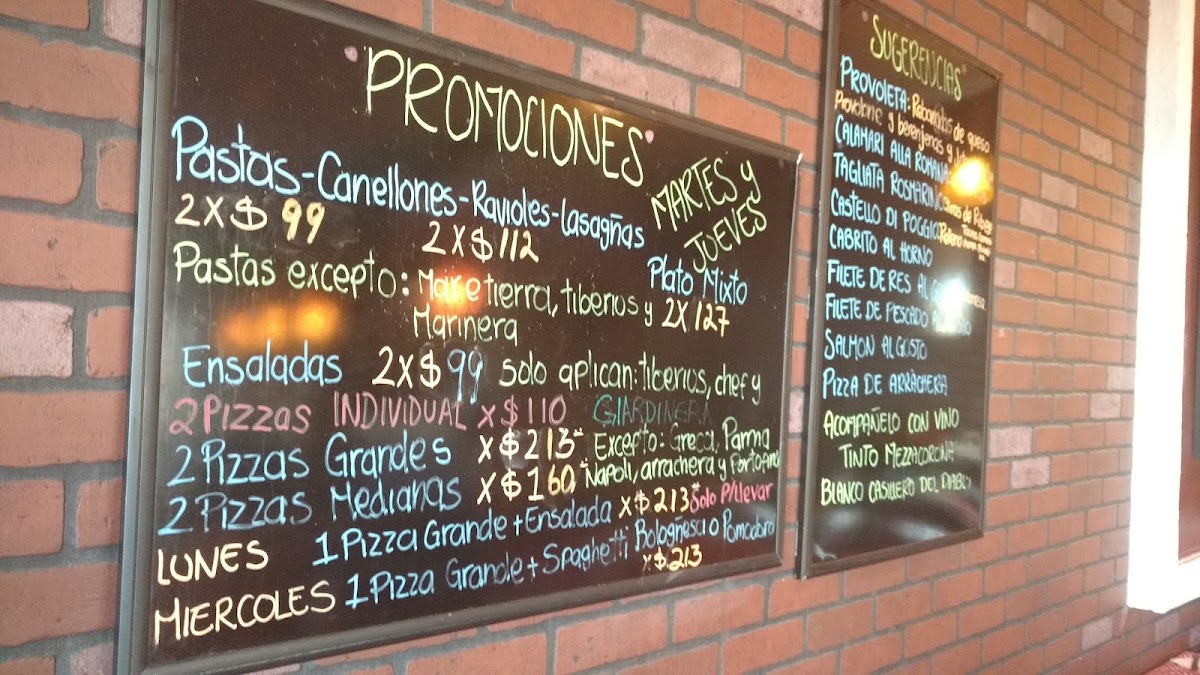 PROMOCIONES
MARTES y
JUEVES
Pastas-Canellones-Ravioles-Lasagñas
2X$ 99
2X$112
Plato Mixto
2X 127
Pastas excepto: Mar e tierra, tiberios y
Marinera
Ensaladas 2X$99 solo aplican: tiberios, chef y
GIARDINERA
2 Pizzas INDIVIDUAL X $110
2 Pizzas Grandes X $213
Excepto: Greca, Parma
Napoli, arrachera y Portofino
2 Pizzas Medianas X $160
LUNES 1 Pizza Grande + Ensalada X $213 Solo P/llevar
MIERCOLES 1 Pizza Grande + Spaghetti Bologñesa o Pomodoro
X $213
SUGERENCIAS
PROVOLETA: Rebanadas de queso
Provolone y berenjenas y
CALAMARI ALLA ROMANA
TAGLIATA ROSMARINO
CASTELLO DI POGGIO
CABRITO AL HORNO
FILETE DE RES AL
FILETE DE PESCADO
SALMON AL GUSTO
PIZZA DE ARRACHERA
ACOMPAÑELO CON VINO
TINTO MEZZACORONA
BLANCO CASILLERO DEL DIABLO